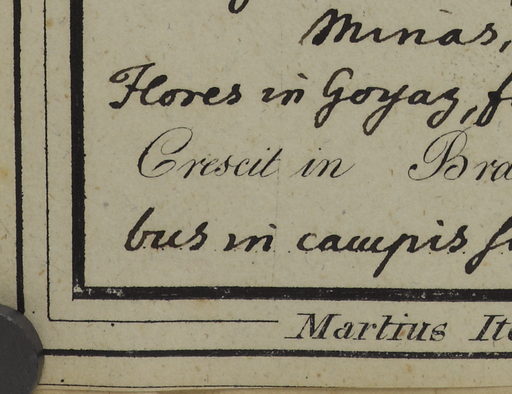 Minas,
Flores in Goyaz,
Crescit in Bra
bus in campis
Martius Ite